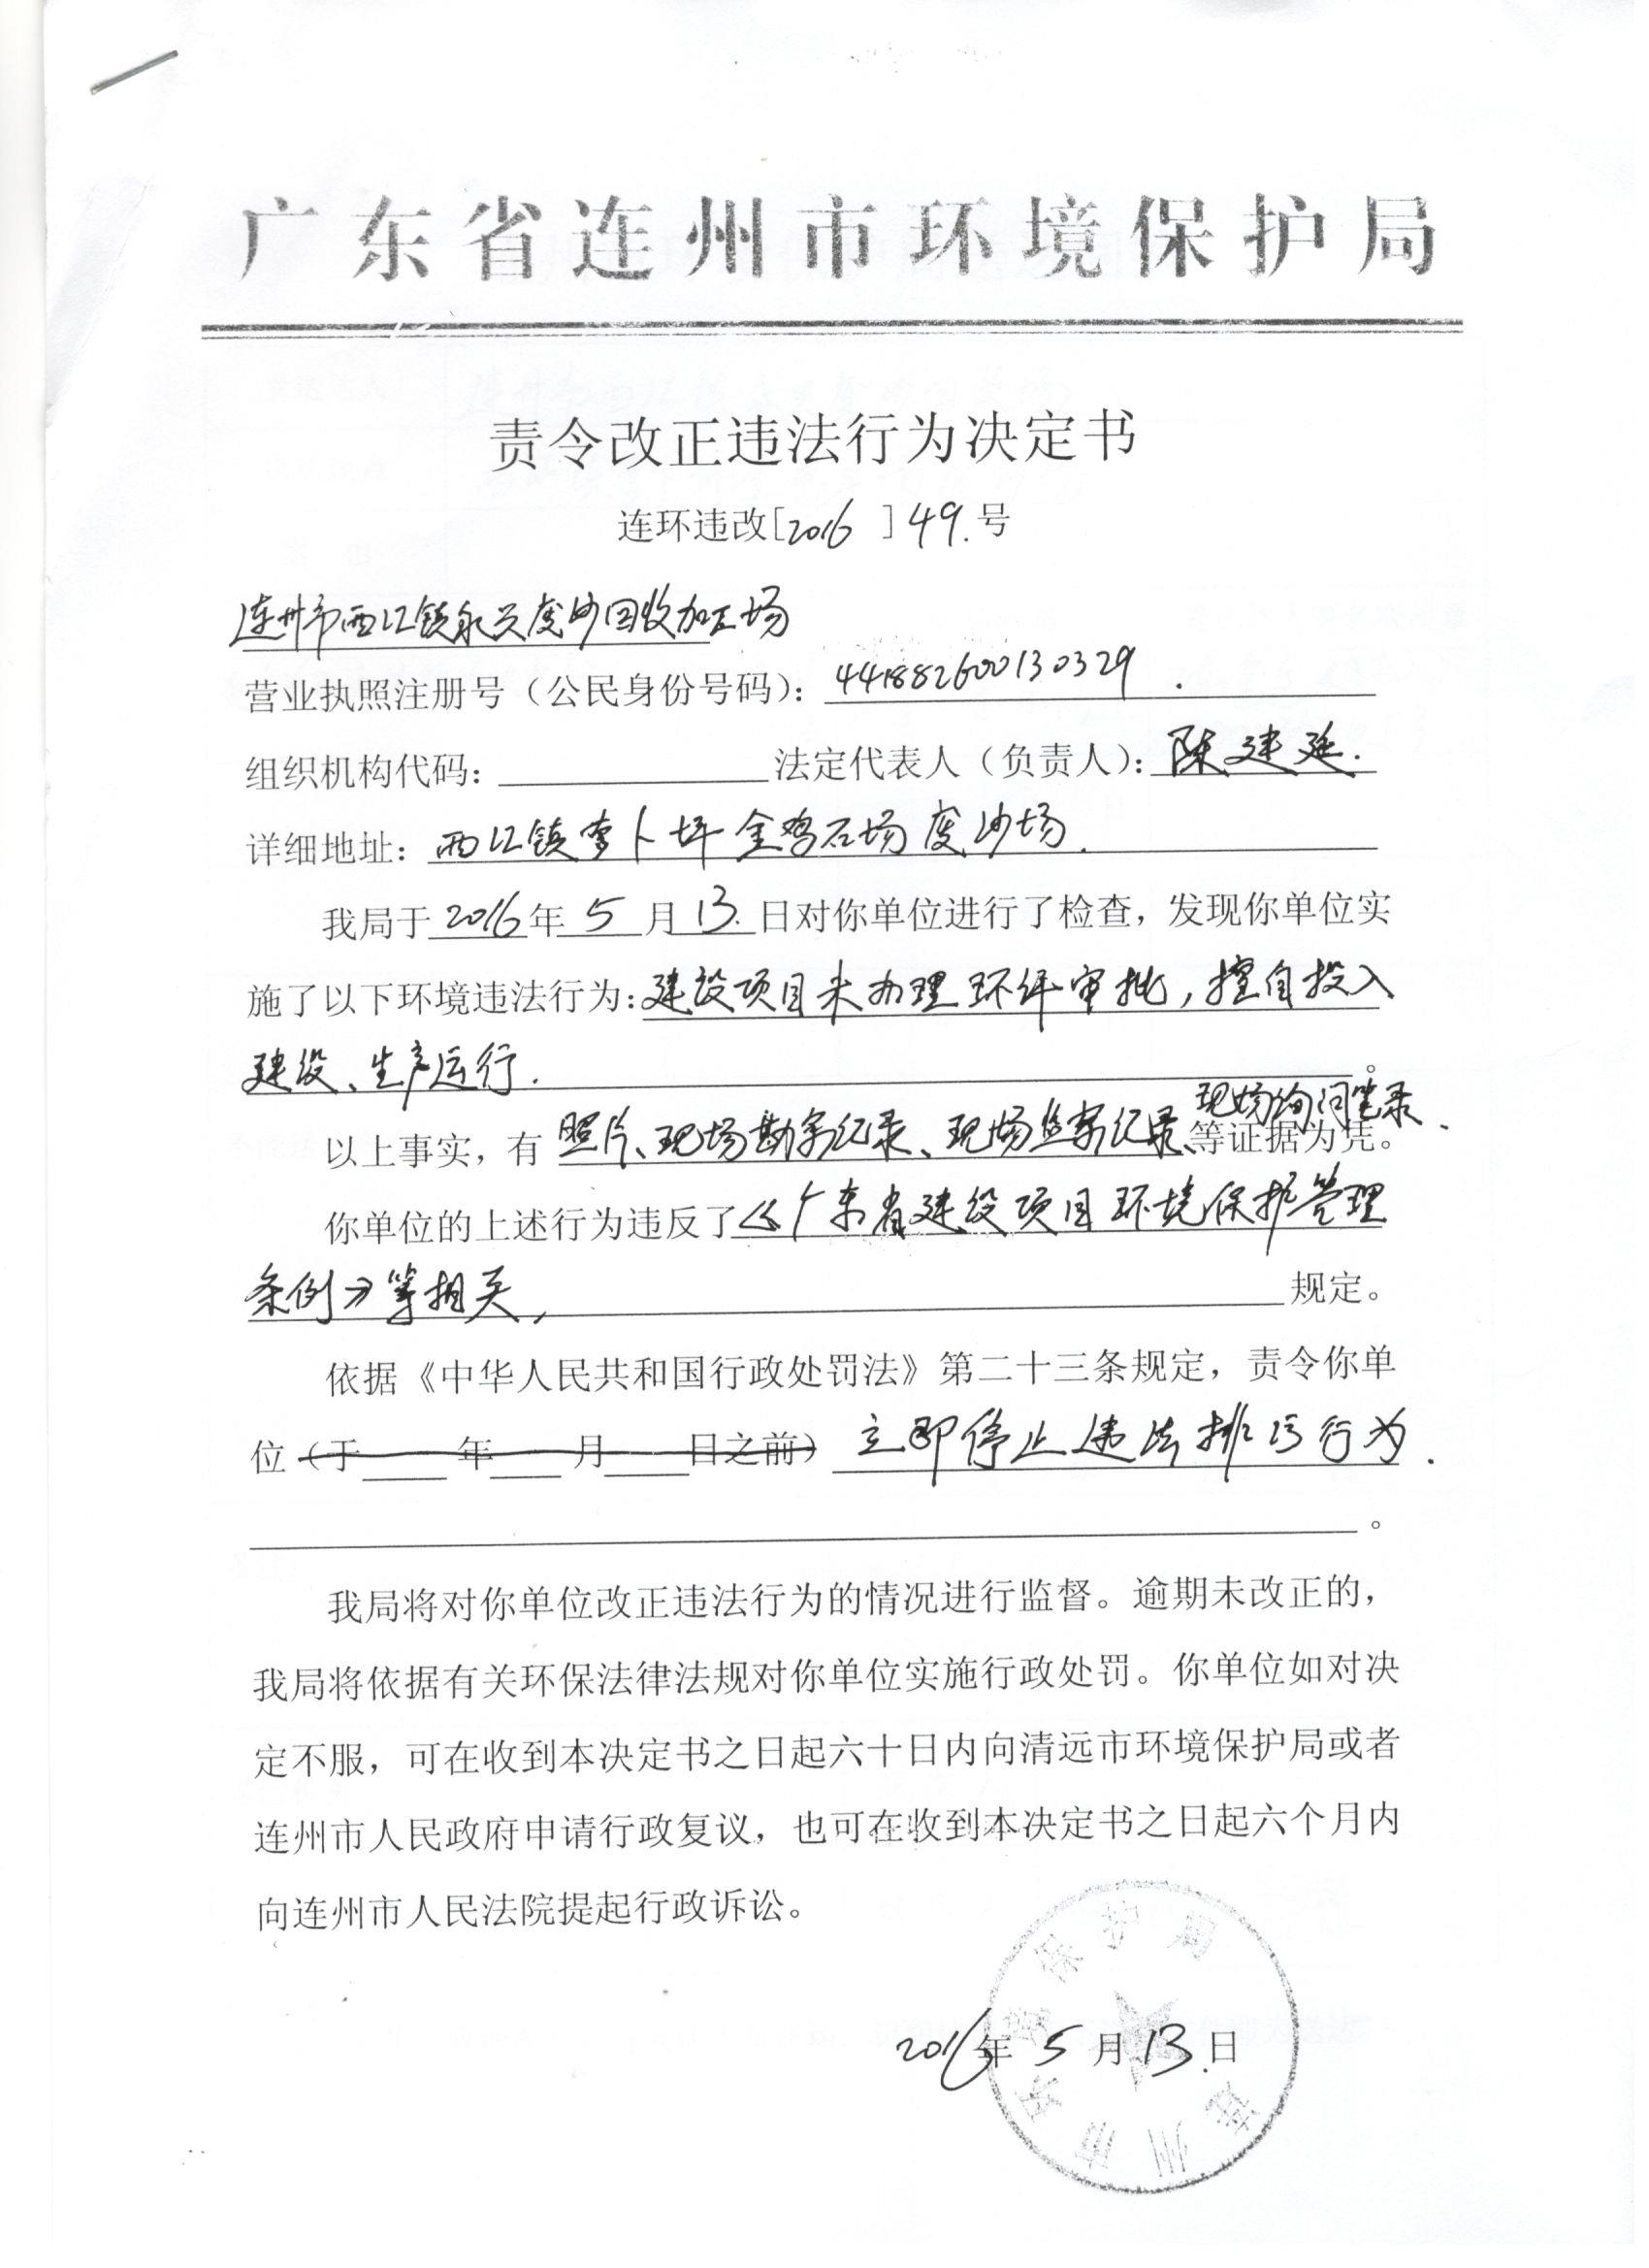 广东省连州市环境保护局
责令改正违法行为决定书
连环违改[2016]49.号
连州市西江镇永兴废沙回收加工场
营业执照注册号（公民身份号码）：441882600130329.
组织机构代码：法定代表人（负责人）：陈建延.
详细地址：西江镇萝卜坪金鸡石场废沙场.
我局于2016年5月13.日对你单位进行了检查，发现你单位实
施了以下环境违法行为：建设项目未办理环评审批，擅自投入
建设、生产运行.。
现场询问笔录、
以上事实，有照片、现场勘察记录、现场监察记录、等证据为凭。
你单位的上述行为违反了《广东省建设项目环境保护管理
条例》等相关，规定。
依据《中华人民共和国行政处罚法》第二十三条规定，责令你单
位（于 年 月 日之前）立即停止违法排污行为.
。
我局将对你单位改正违法行为的情况进行监督。逾期未改正的，
我局将依据有关环保法律法规对你单位实施行政处罚。你单位如对决
定不服，可在收到本决定书之日起六十日内向清远市环境保护局或者
连州市人民政府申请行政复议，也可在收到本决定书之日起六个月内
向连州市人民法院提起行政诉讼。
连州市环境保护局
2016年5月13.日